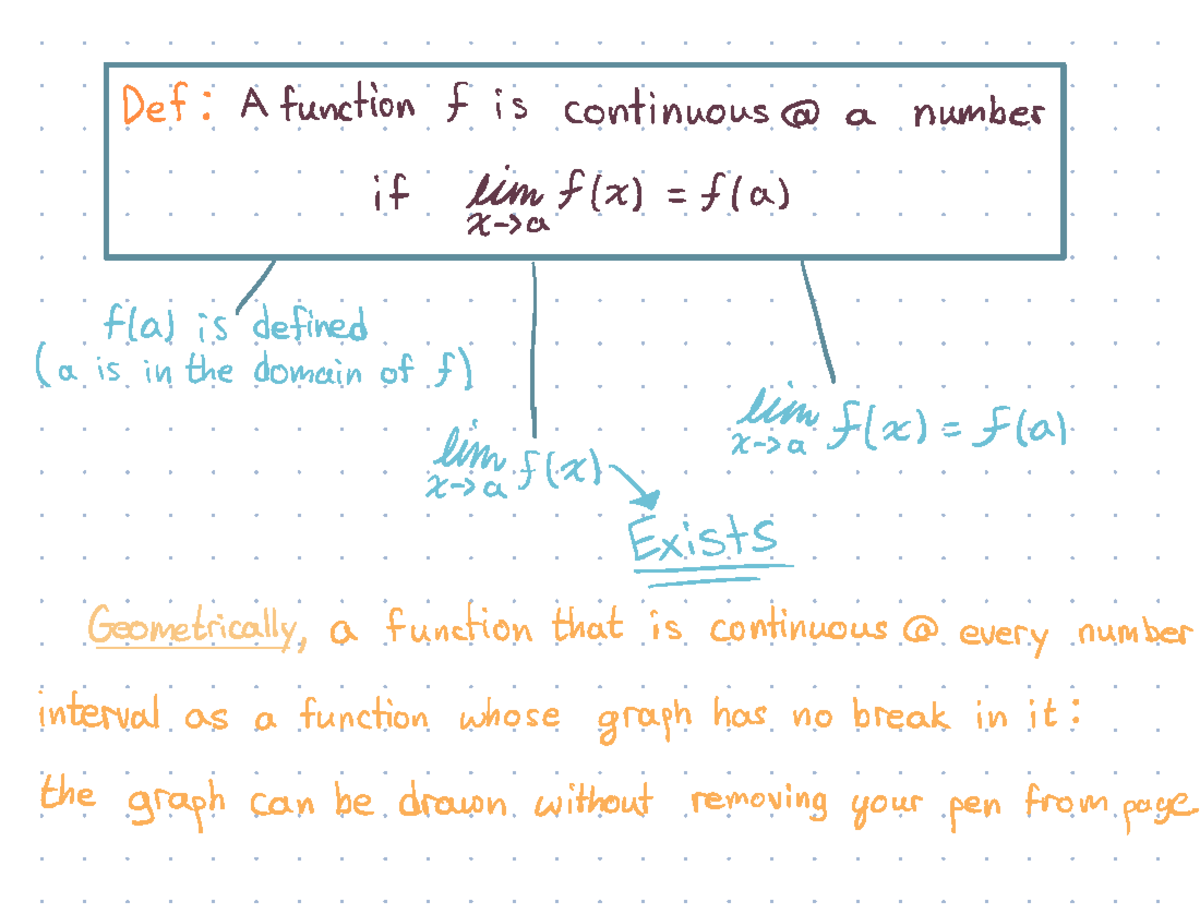 Def: A function f is continuous @ a number
if lim f(x) = f(a)
x->a
f(a) is defined
(a is in the domain of f)
lim f(x) = f(a)
x->a
lim f(x)
x->a
Exists
Geometrically, a function that is continuous @ every number
interval as a function whose graph has no break in it:
the graph can be drawn without removing your pen from page